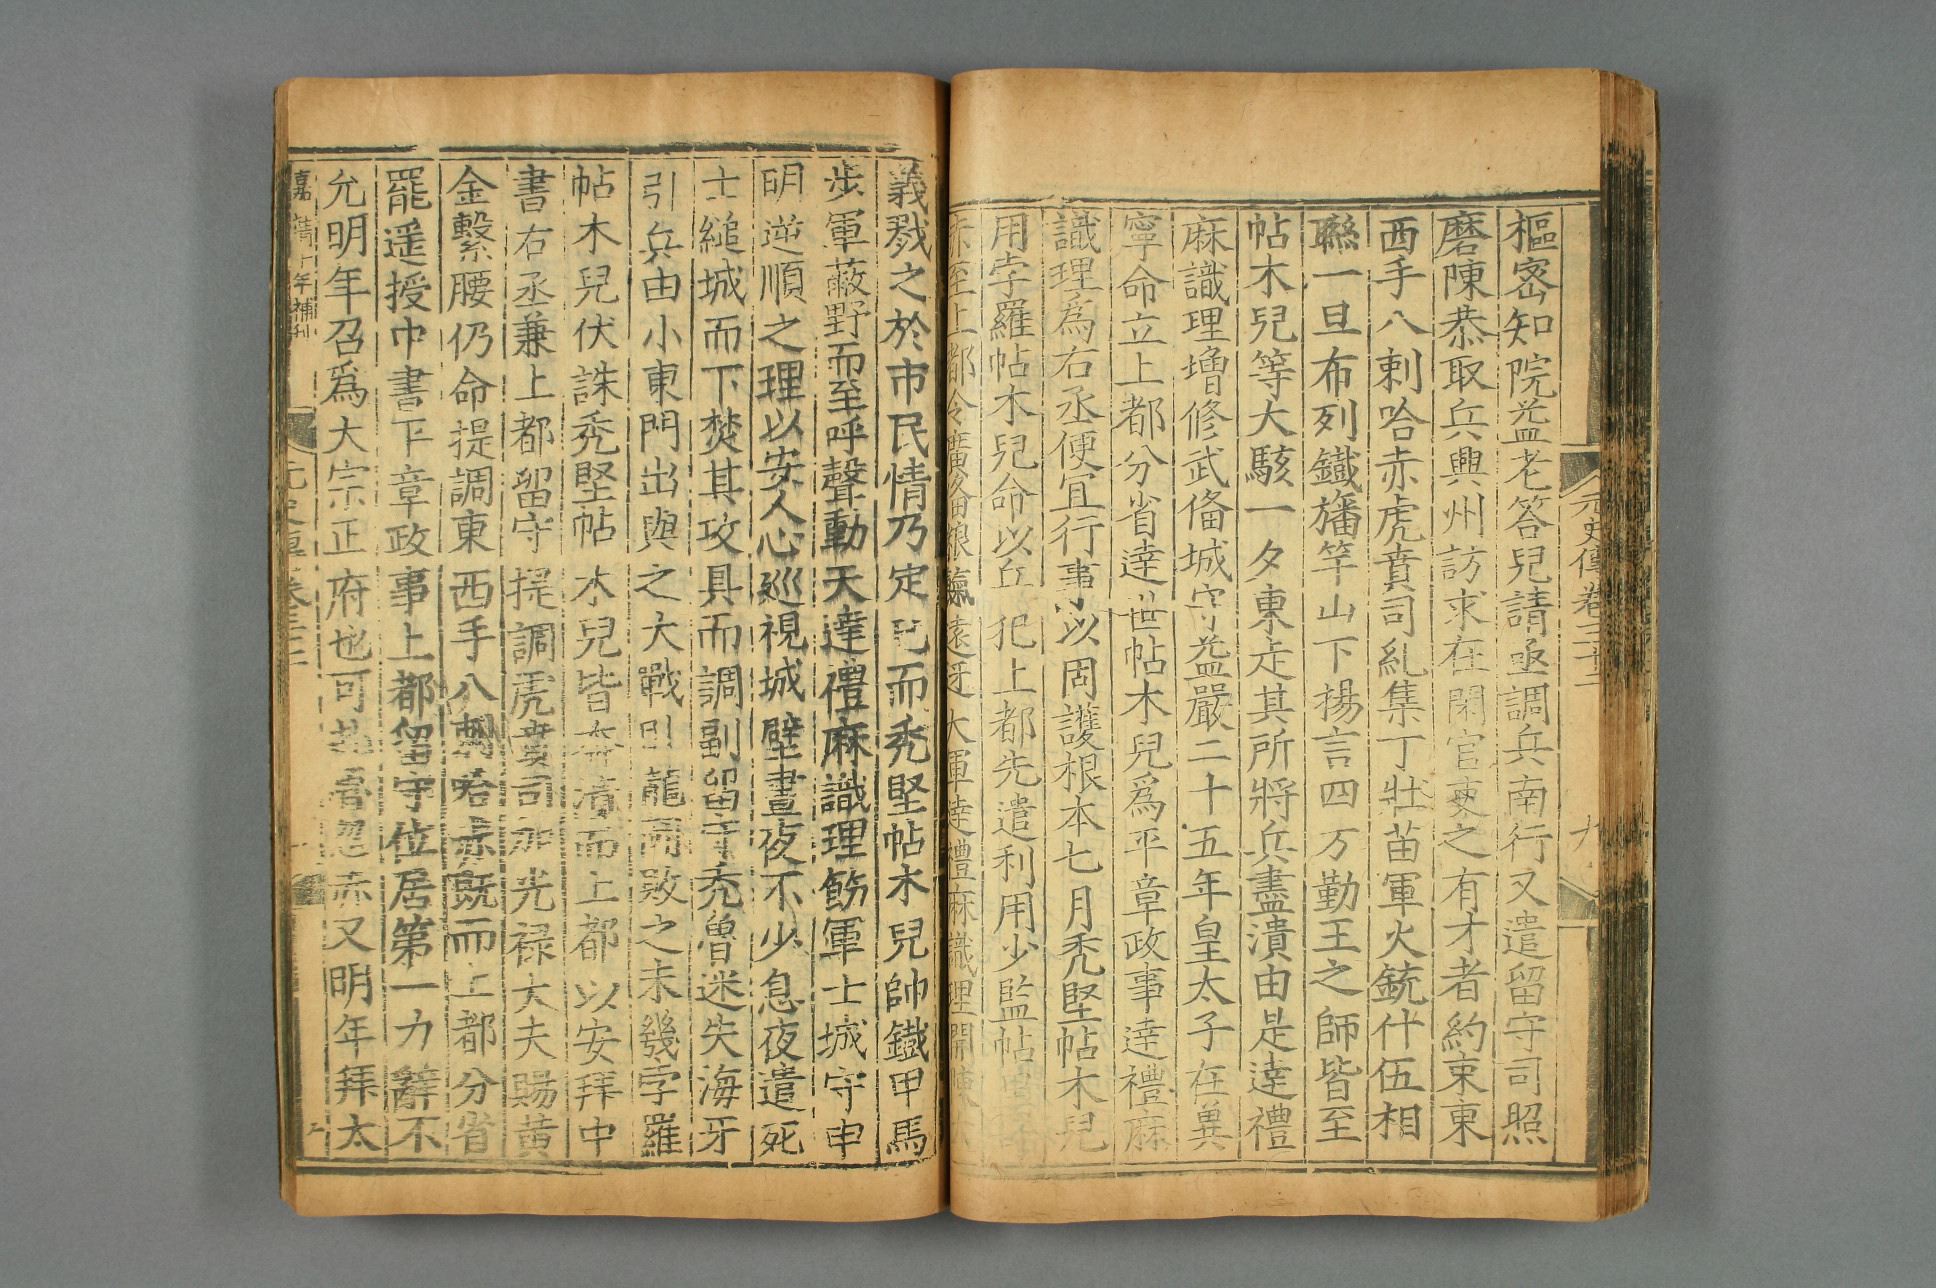 元史傳卷三十二
九
樞密知院益老答兒請亟調兵南行又遣留守司照
磨陳恭取兵興州訪求在閑官吏之有才者約束東
西手八剌哈赤虎賁司糺集丁壯苗軍火銃什伍相
聯一旦布列鐵旛竿山下揚言四方勤王之師皆至
帖木兒等大駭一夕東走其所將兵盡潰由是達禮
麻識理增修武俻城守益嚴二十五年皇太子在兾
寧命立上都分省達世帖木兒爲平章政事達禮麻
識理爲右丞便宜行事以固護根本七月禿堅帖木兒
用孛羅帖木兒命以兵犯上都先遣利用少監帖里
赤至上都令廣備糧餼遠迓大軍達禮麻識理開陳大
義戮之於市民情乃定已而禿堅帖木兒帥鐵甲馬
步軍蔽野而至呼聲動天達禮麻識理飭軍士城守申
明逆順之理以安人心巡視城壁晝夜不少息夜遣死
士縋城而下焚其攻具而調副留守禿魯迷失海牙
引兵由小東門出與之大戰卧龍岡敗之未幾孛羅
帖木兒伏誅禿堅帖木兒皆奔潰而上都以安拜中
書右丞兼上都留守提調虎賁司加光禄大夫賜黃
金繫腰仍命提調東西手八剌哈赤既而上都分省
罷遥授中書平章政事上都留守位居第一力辭不
允明年召爲大宗正府也可扎魯忽赤又明年拜太
嘉靖十年補刊
元史傳卷三十二